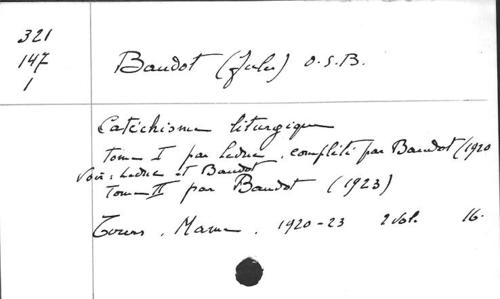 321
147
1
Baudot (Jules) O.S.B.
Catéchisme liturgique
tome I par Leduc, complété par Baudot (1920
Voir : Leduc et Baudot
tome II par Baudot (1923)
Tours, Mame, 1920-23 2 vol. 16.